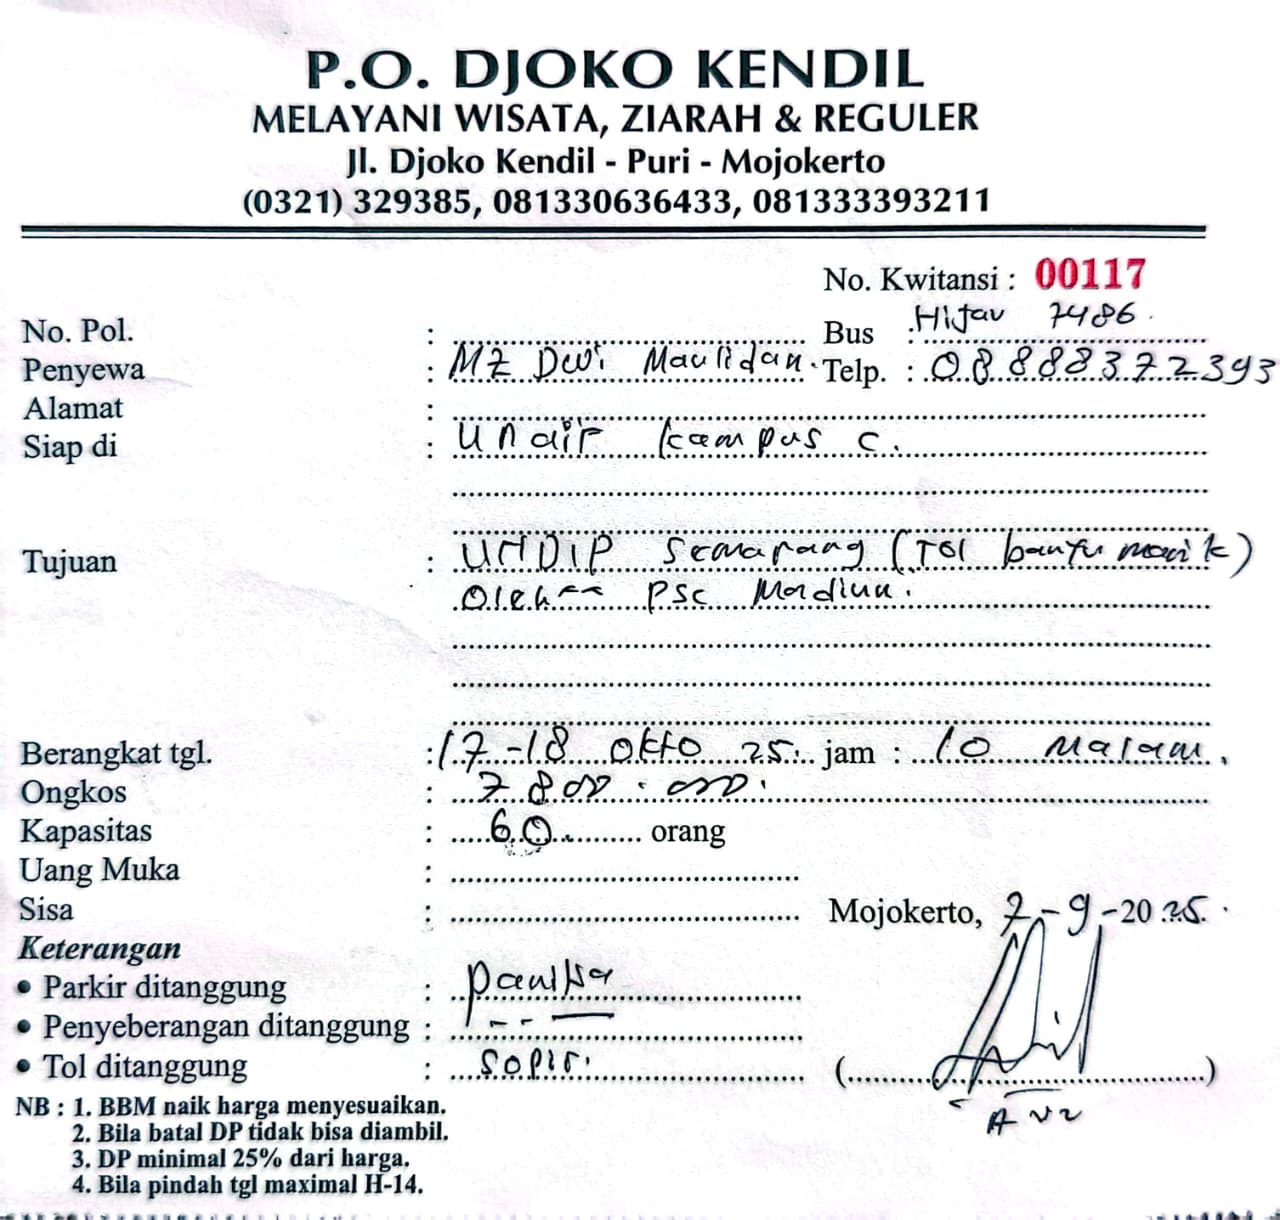 P.O. DJOKO KENDIL
MELAYANI WISATA, ZIARAH & REGULER
Jl. Djoko Kendil - Puri - Mojokerto
(0321) 329385, 081330636433, 081333393211
No. Kwitansi : 00117
No. Pol. : Bus Hijau 7486
Penyewa : MZ Dwi Maulidan. Telp. : 08888372393
Alamat :
Siap di : Unair kampus C.
Tujuan : UNDIP Semarang (Tol banyumanik)
Oleh" PSC Madiun.
Berangkat tgl. : 17-18 Okto 25. jam : 10 Malam.
Ongkos : 7.800.000.
Kapasitas : 60 orang
Uang Muka :
Sisa : Mojokerto, 7-9-2025.
Keterangan
• Parkir ditanggung : panitia
• Penyeberangan ditanggung : --
• Tol ditanggung : sopir. ( )
NB : 1. BBM naik harga menyesuaikan.
2. Bila batal DP tidak bisa diambil.
3. DP minimal 25% dari harga.
4. Bila pindah tgl maximal H-14.